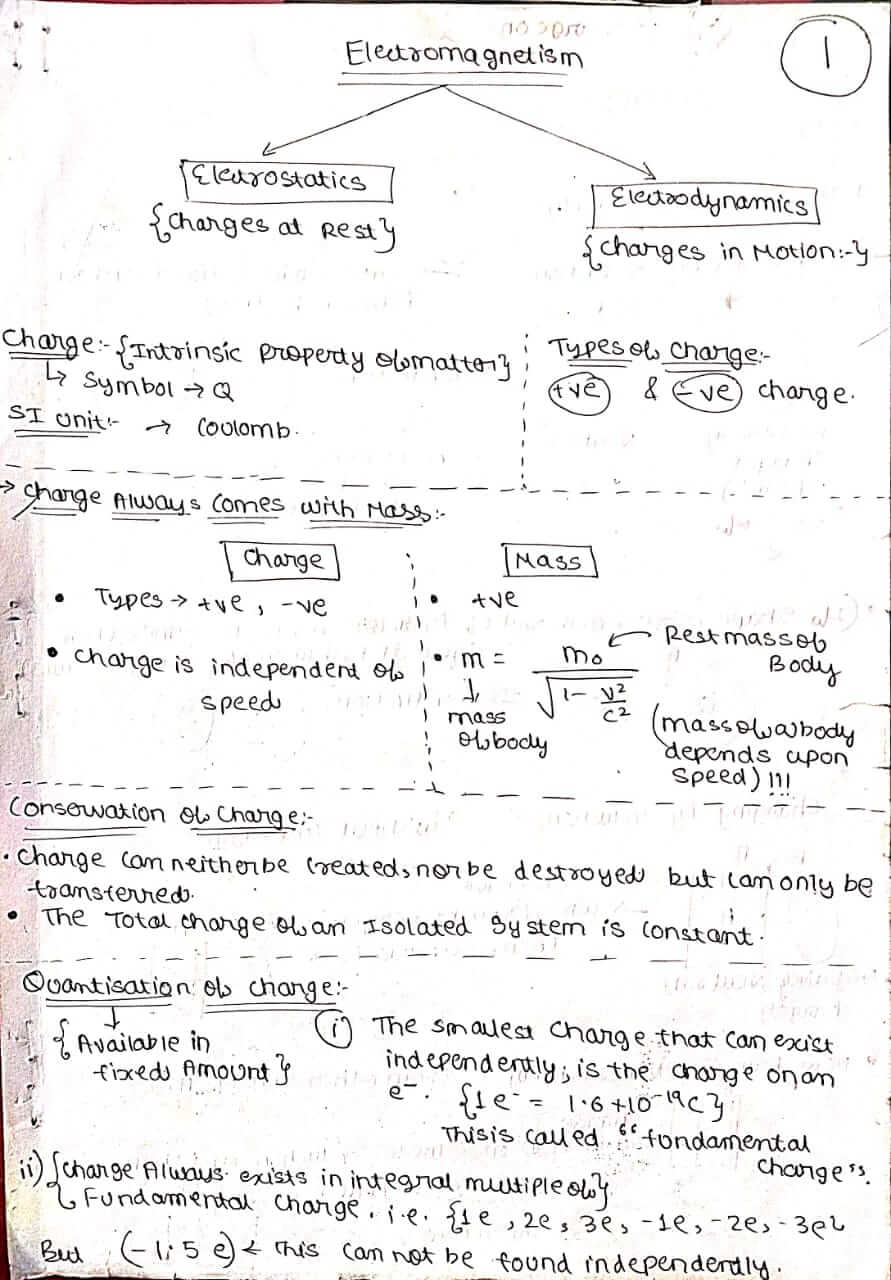 Electromagnetism
1
Electrostatics
{Charges at Rest}
Electrodynamics
{Charges in Motion:-}
Charge:- {Intrinsic Property of matter}
↳ Symbol → Q
SI Unit:- → Coulomb.
Types of Charge:-
+ve & -ve charge.
→ Charge Always Comes with Mass:-
Charge
• Types → +ve, -ve
• Charge is independent of
speed
Mass
• +ve
• m = m₀ / √(1 - v²/c²)
Rest mass of
Body
↓
mass
of body
(mass of a body
depends upon
speed) !!!
Conservation of Charge:-
• Charge can neither be created, nor be destroyed but can only be
transferred.
• The Total charge of an Isolated System is constant.
Quantisation of charge:-
↓
{Available in
fixed Amount}
(i) The smallest Charge that can exist
independently, is the charge on an
e⁻. {1e⁻ = 1.6+10⁻¹⁹C}
This is called “fondamental
Charge”.
ii) {Charge Always exists in integral multiple of}
{Fundamental Charge. i.e. {1e, 2e, 3e, -1e, -2e, -3e}
But (-1.5 e) ← this can not be found independently.